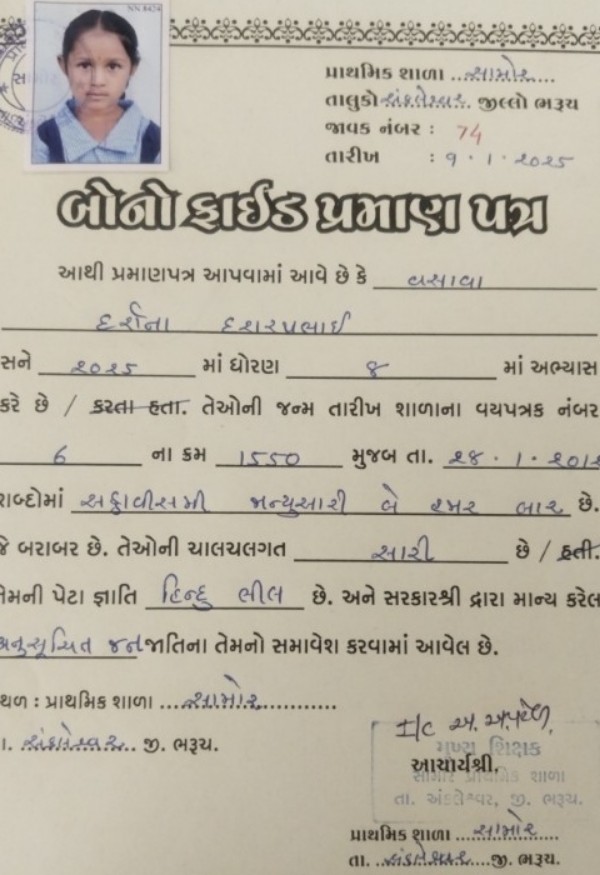 NN 8424
પ્રાથમિક શાળા ..સામોર....
તાલુકો અંકલેશ્વર. જીલ્લો ભરૂચ
જાવક નંબર : 74
તારીખ : ૧ . ૧ . ૨૦૨૫
બોનો ફાઈડ પ્રમાણ પત્ર
આથી પ્રમાણપત્ર આપવામાં આવે છે કે વસાવા
દર્શના
સને ૨૦૨૫ માં ધોરણ ૪ માં અભ્યાસ
કરે છે / કરતા હતા. તેઓની જન્મ તારીખ શાળાના વયપત્રક નંબર
6 ના ક્રમ 1550 મુજબ તા. ૨૮ . ૧ . ૨૦૧૨
શબ્દોમાં જાન્યુઆરી બે હજાર બાર છે.
જે બરાબર છે. તેઓની ચાલચલગત સારી છે / હતી.
તેમની પેટા જ્ઞાતિ હિન્દુ ભીલ છે. અને સરકારશ્રી દ્વારા માન્ય કરેલ
અનુસૂચિત જનજાતિના તેમનો સમાવેશ કરવામાં આવેલ છે.
સ્થળ : પ્રાથમિક શાળા ....સામોર................
તા. અંકલેશ્વર.. જી. ભરૂચ.
I/C
મુખ્ય શિક્ષક
આચાર્યશ્રી,
સામોર પ્રાથમિક શાળા
તા. અંકલેશ્વર, જી. ભરૂચ.
પ્રાથમિક શાળા ....સામોર....
તા. ..અંકલેશ્વર.....જી. ભરૂચ.